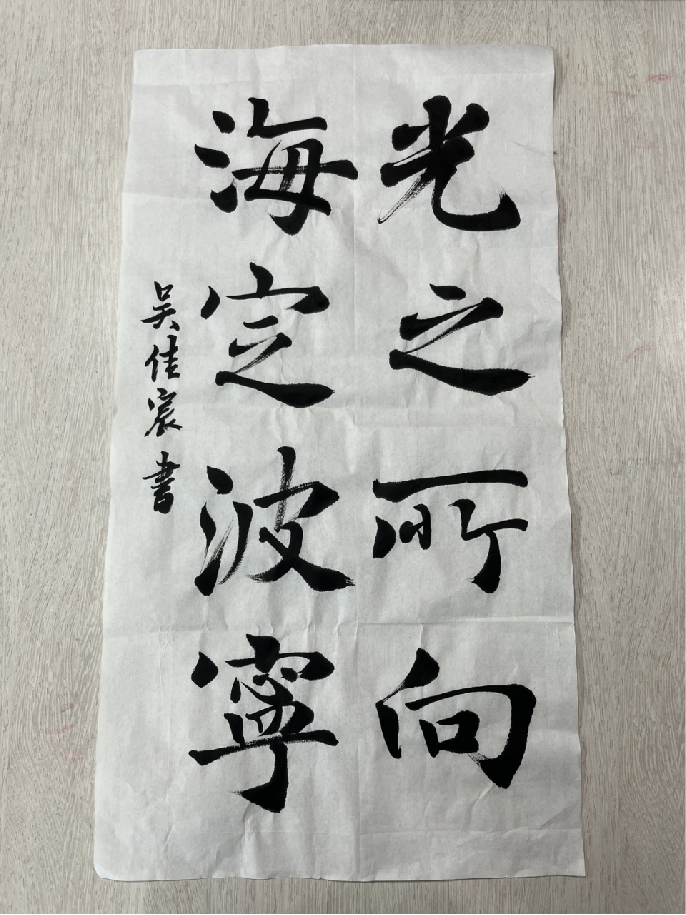 光之所向
海定波寧
吴佳宸書